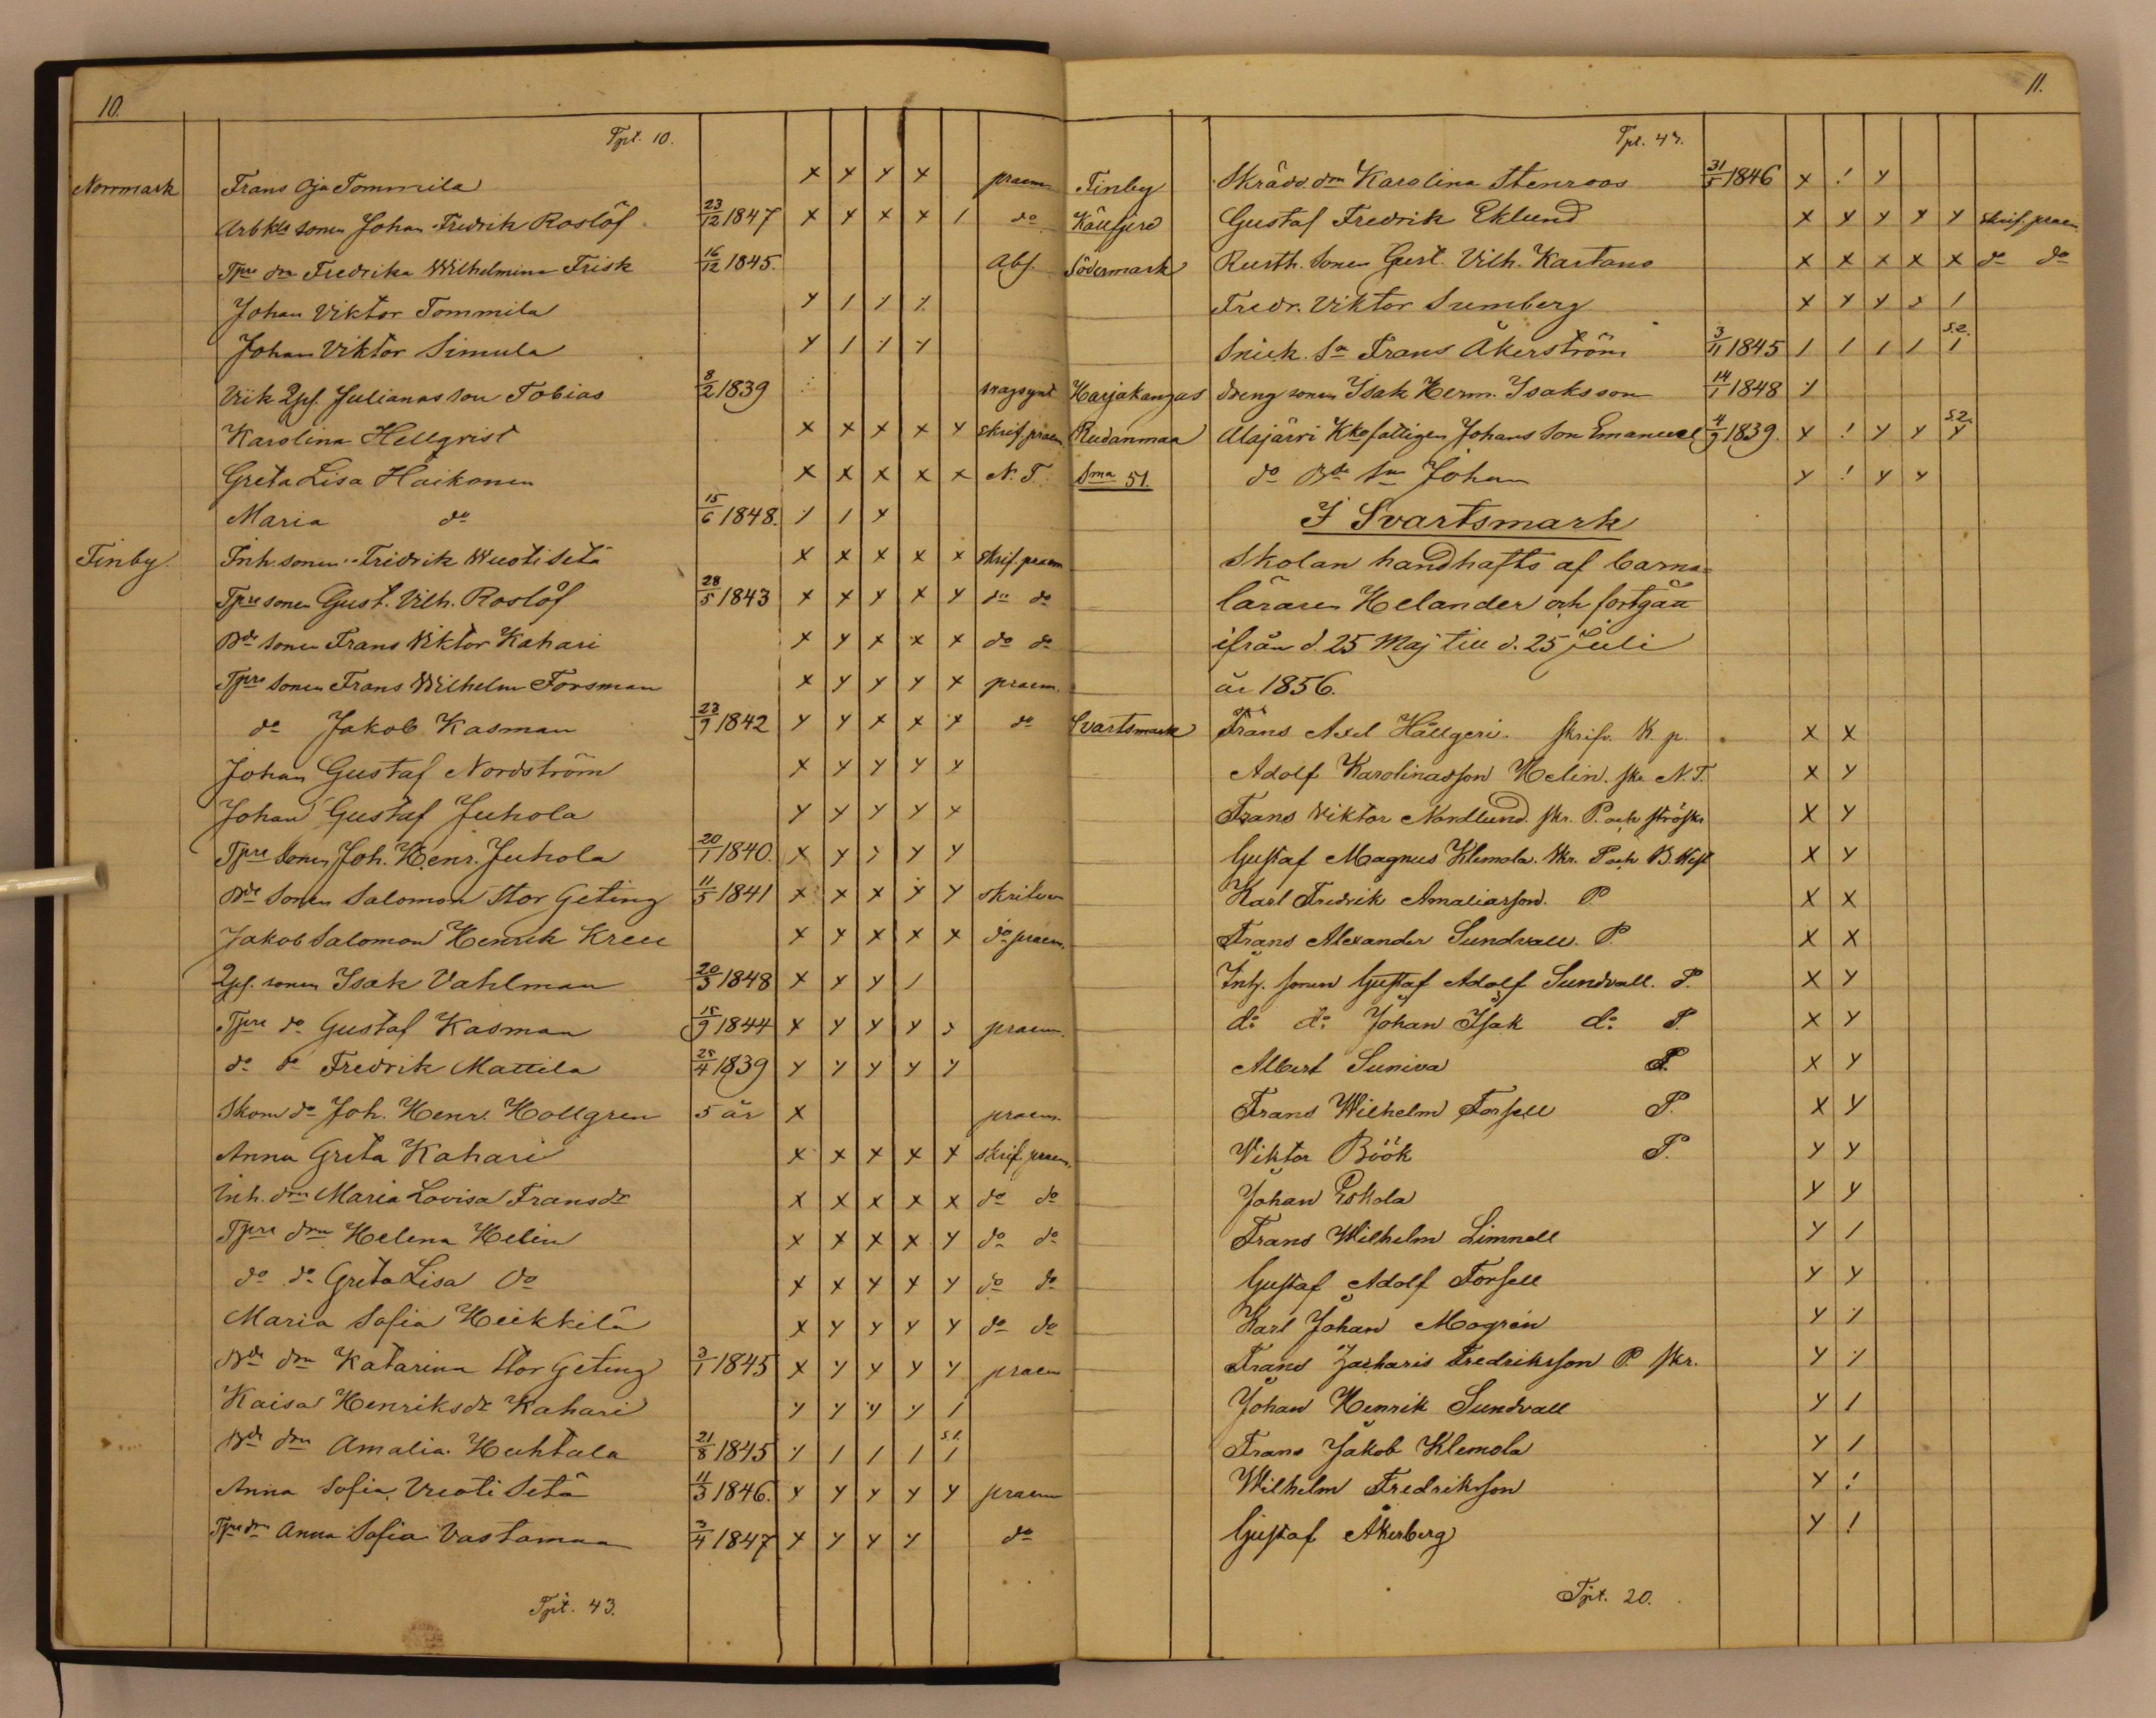 10.
Tpt. 10.
Norrmark Frans Oja Tommila x y y y praem
Arbkls sonen Johan Fredrik Roslöf 23/12 1847 x y x x 1 do
Tpre dr Fredrika Wilhelmina Frisk 16/12 1845. Abs.
Johan Viktor Tommila y / / ⁒
Johan Viktor Simula y / ⁒ ⁒
Julianas son Tobias 8/2 1839 svagsynt
Karolina Hellqvist x x x x y skrif. praem
Greta Lisa Haikonen x x x x x N. T.
Maria do 15/6 1848. ⁒ / y
Finby Inh. sonen Fridrik Wuotisetä x x x x x skrif. praem
Tpre sonen Gust. Vilh. Roslöf 28/5 1843 x x y x y do do
Bde sonen Frans Viktor Kahari x y x x x do do
Tpre sonen Frans Wilhelm Forsman x y y y x praem.
do Jakob Kasman 23/9 1842 y y x x x do
Johan Gustaf Nordström x y y y y
Johan Gustaf Juhola y y y y x
Tpre sonen Joh. Henr. Juhola 20/1 1840. x y y y y
Bde sonen Salomon Stor Geting 11/5 1841 x x x x y skrifver
Jakob Salomon Henrik Kreu x y x x x do praem.
sonen Isak Vahlman 20/3 1848 x y y /
Tpre do Gustaf Kasman 15/9 1844 x y y y y praem.
do do Fredrik Mattila 25/4 1839 y y y y y
Skom do Joh. Henr. Hollgren 5 år x praem.
Anna Greta Kahari x x x x x skrif. praem.
Inh. drn Maria Lovisa Fransdr x x x x x do do
Tpre drn Helena Helin x x x x y do do
do do Greta Lisa do x x y x y do do
Maria Sofia Heikkilä x y y y y do do
Bde drn Katarina Stor Geting 3/1 1845 x y y y y praem
Kaisa Henriksdr Kahari y y y y /
Bde drn Amalia Huhtala 21/8 1845 ⁒ / / / s.1. /
Anna Sofia Vuoti Setä 11/3 1846. y y y y y praem
Tpre dr Anna Sofia Vastamaa 3/4 1847 y y y y do
Tpt. 43.
11.
Tpt. 43.
Finby Skrädd drn Karolina Stenroos 31/5 1846 x ! y
Gustaf Fredrik Eklund x y y y y skrif. praem.
Södermark Rusth. sonen Gust. Vilh. Kartano x x x x x do do
Fredr. Viktor Sumberg x y y y /
Snick. Sn Frans Åkerström 3/11 1845 / / / / s.2. /
Harjakangas dreng sonen Isak Herm. Isaksson 14/1 1848 ⁒
Rudanmaa Alajärvi Kkofattigen Johans son Emanuel 4/9 1839. y ! y y s.2. y
Sma 51. do Bde sn Johan y ! y y
I Svartsmark
Skolan handhafts af barna-
läraren Helander och fortgått
ifrån d. 25 Maj till d. 25 Juli
år 1856.
Svartsmark Frans Axel Hällgeri. skrifv. K. p. x x
Adolf Karolinasson Helin. skr. N. T. x y
Frans Viktor Nordlund. skr. P. och ströskr x y
Gustaf Magnus Klemola. skr. P och B. Hist x y
Karl Fredrik Amaliasson. P. x x
Frans Alexander Sundvall. P. x x
Inh. sonen Gustaf Adolf Sundvall. P. x y
do do Johan Isak do P. x y
Albert Suniva P. x y
Frans Wilhelm Forsell P. x y
Viktor Böök P. y y
Johan Eskola y y
Frans Wilhelm Limnell y /
Gustaf Adolf Forsell y y
Karl Johan Mogrén y ⁒
Frans Zacharis Fredriksson P. skr. y ⁒
Johan Henrik Sundvall y /
Frans Jakob Klemola y /
Wilhelm Fredriksson y !
Gustaf Åkerberg y !
Tpt. 20.